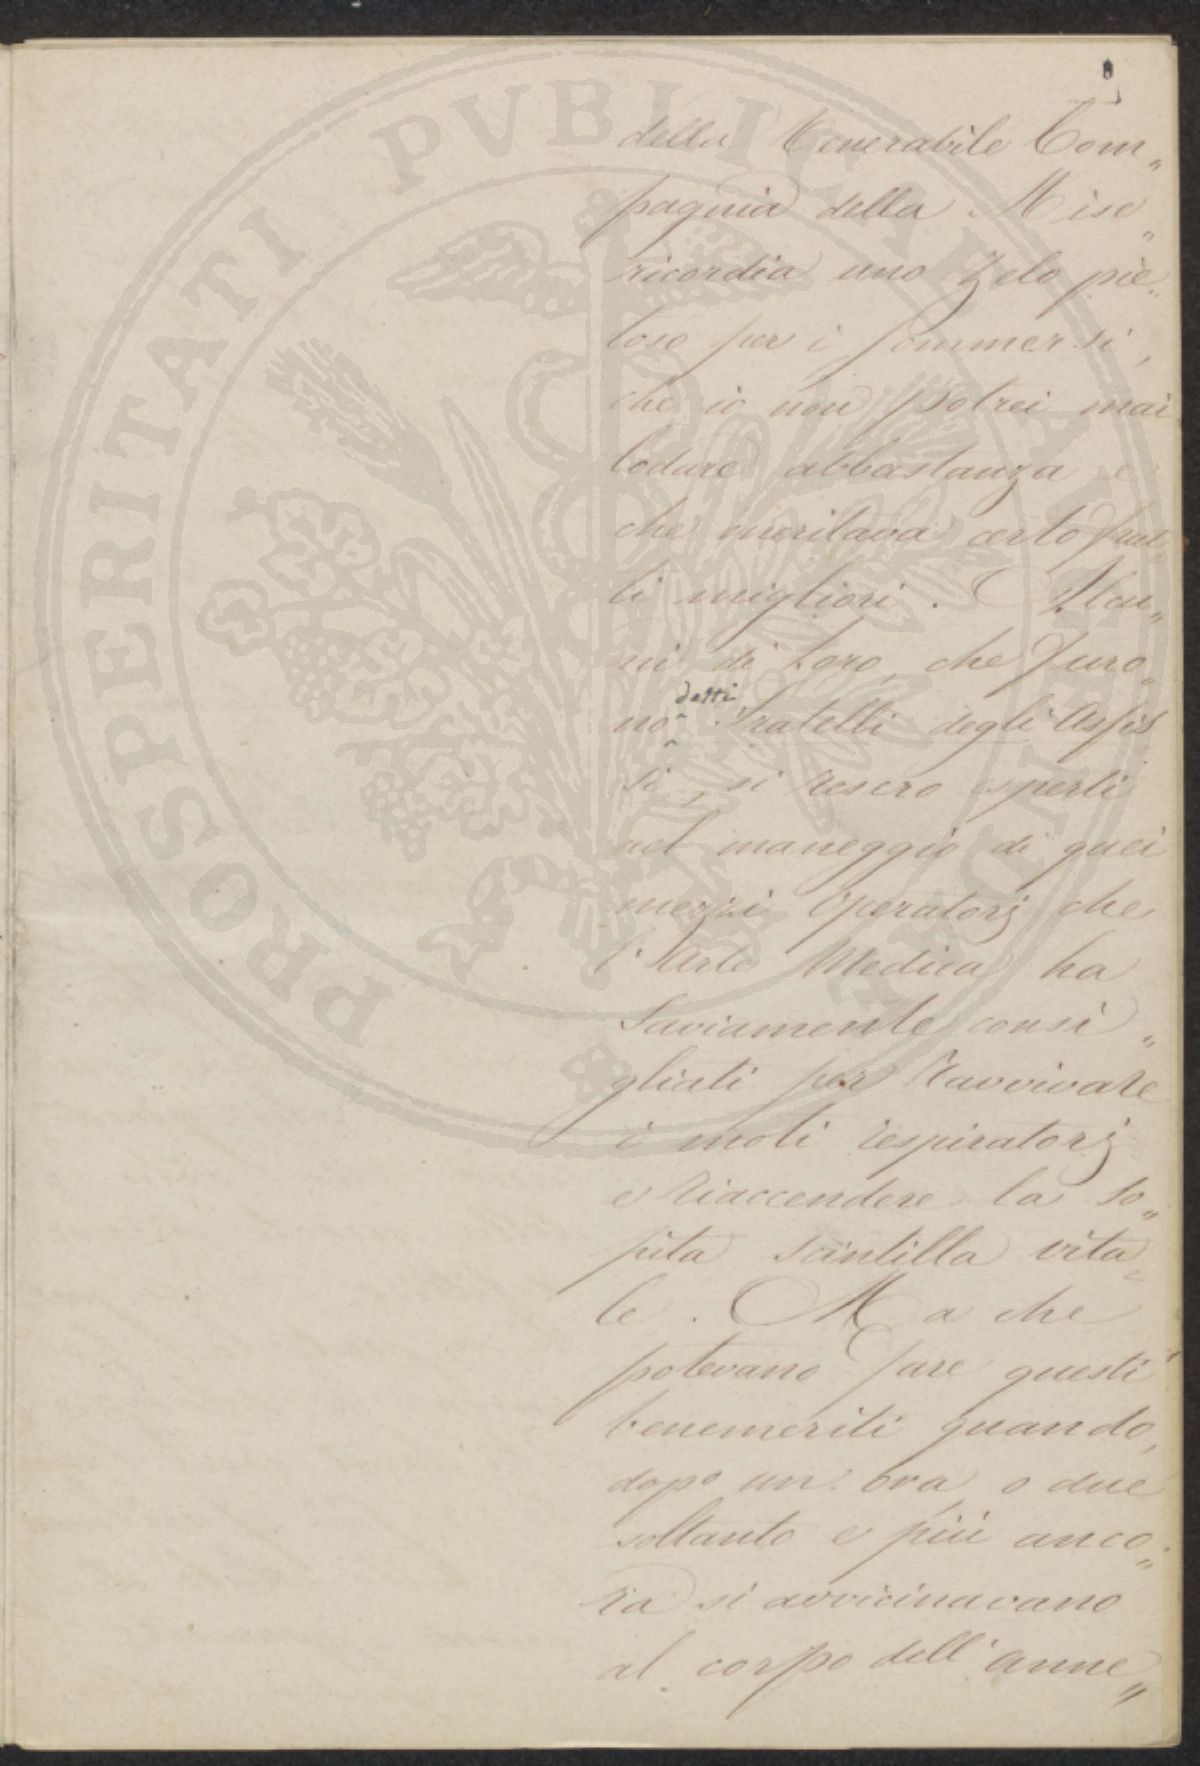 della Venerabile Com„
pagnia della Mise„
ricordia uno Zelo pie„
toso per i sommersi,
che io non potrei mai
lodare abbastanza e
che meritava certo frut„
ti migliori. Alcu„
ni di loro, che furo„
no detti Fratelli degli Asfis
si, si resero esperti
nel maneggio di quei
mezzi operatorj che
l'Arte Medica ha
Saviamente consi„
gliati per Ravvivare
i moti respiratorj
e Riaccendere la so„
pita scintilla vita„
le. Ma che
potevano fare questi
benemeriti quando,
dopo un'ora, o due
soltanto e più anco„
ra si avvicinavano
al corpo dell'anne„
PROSPERITATI PVBLICAE AVGENDAE